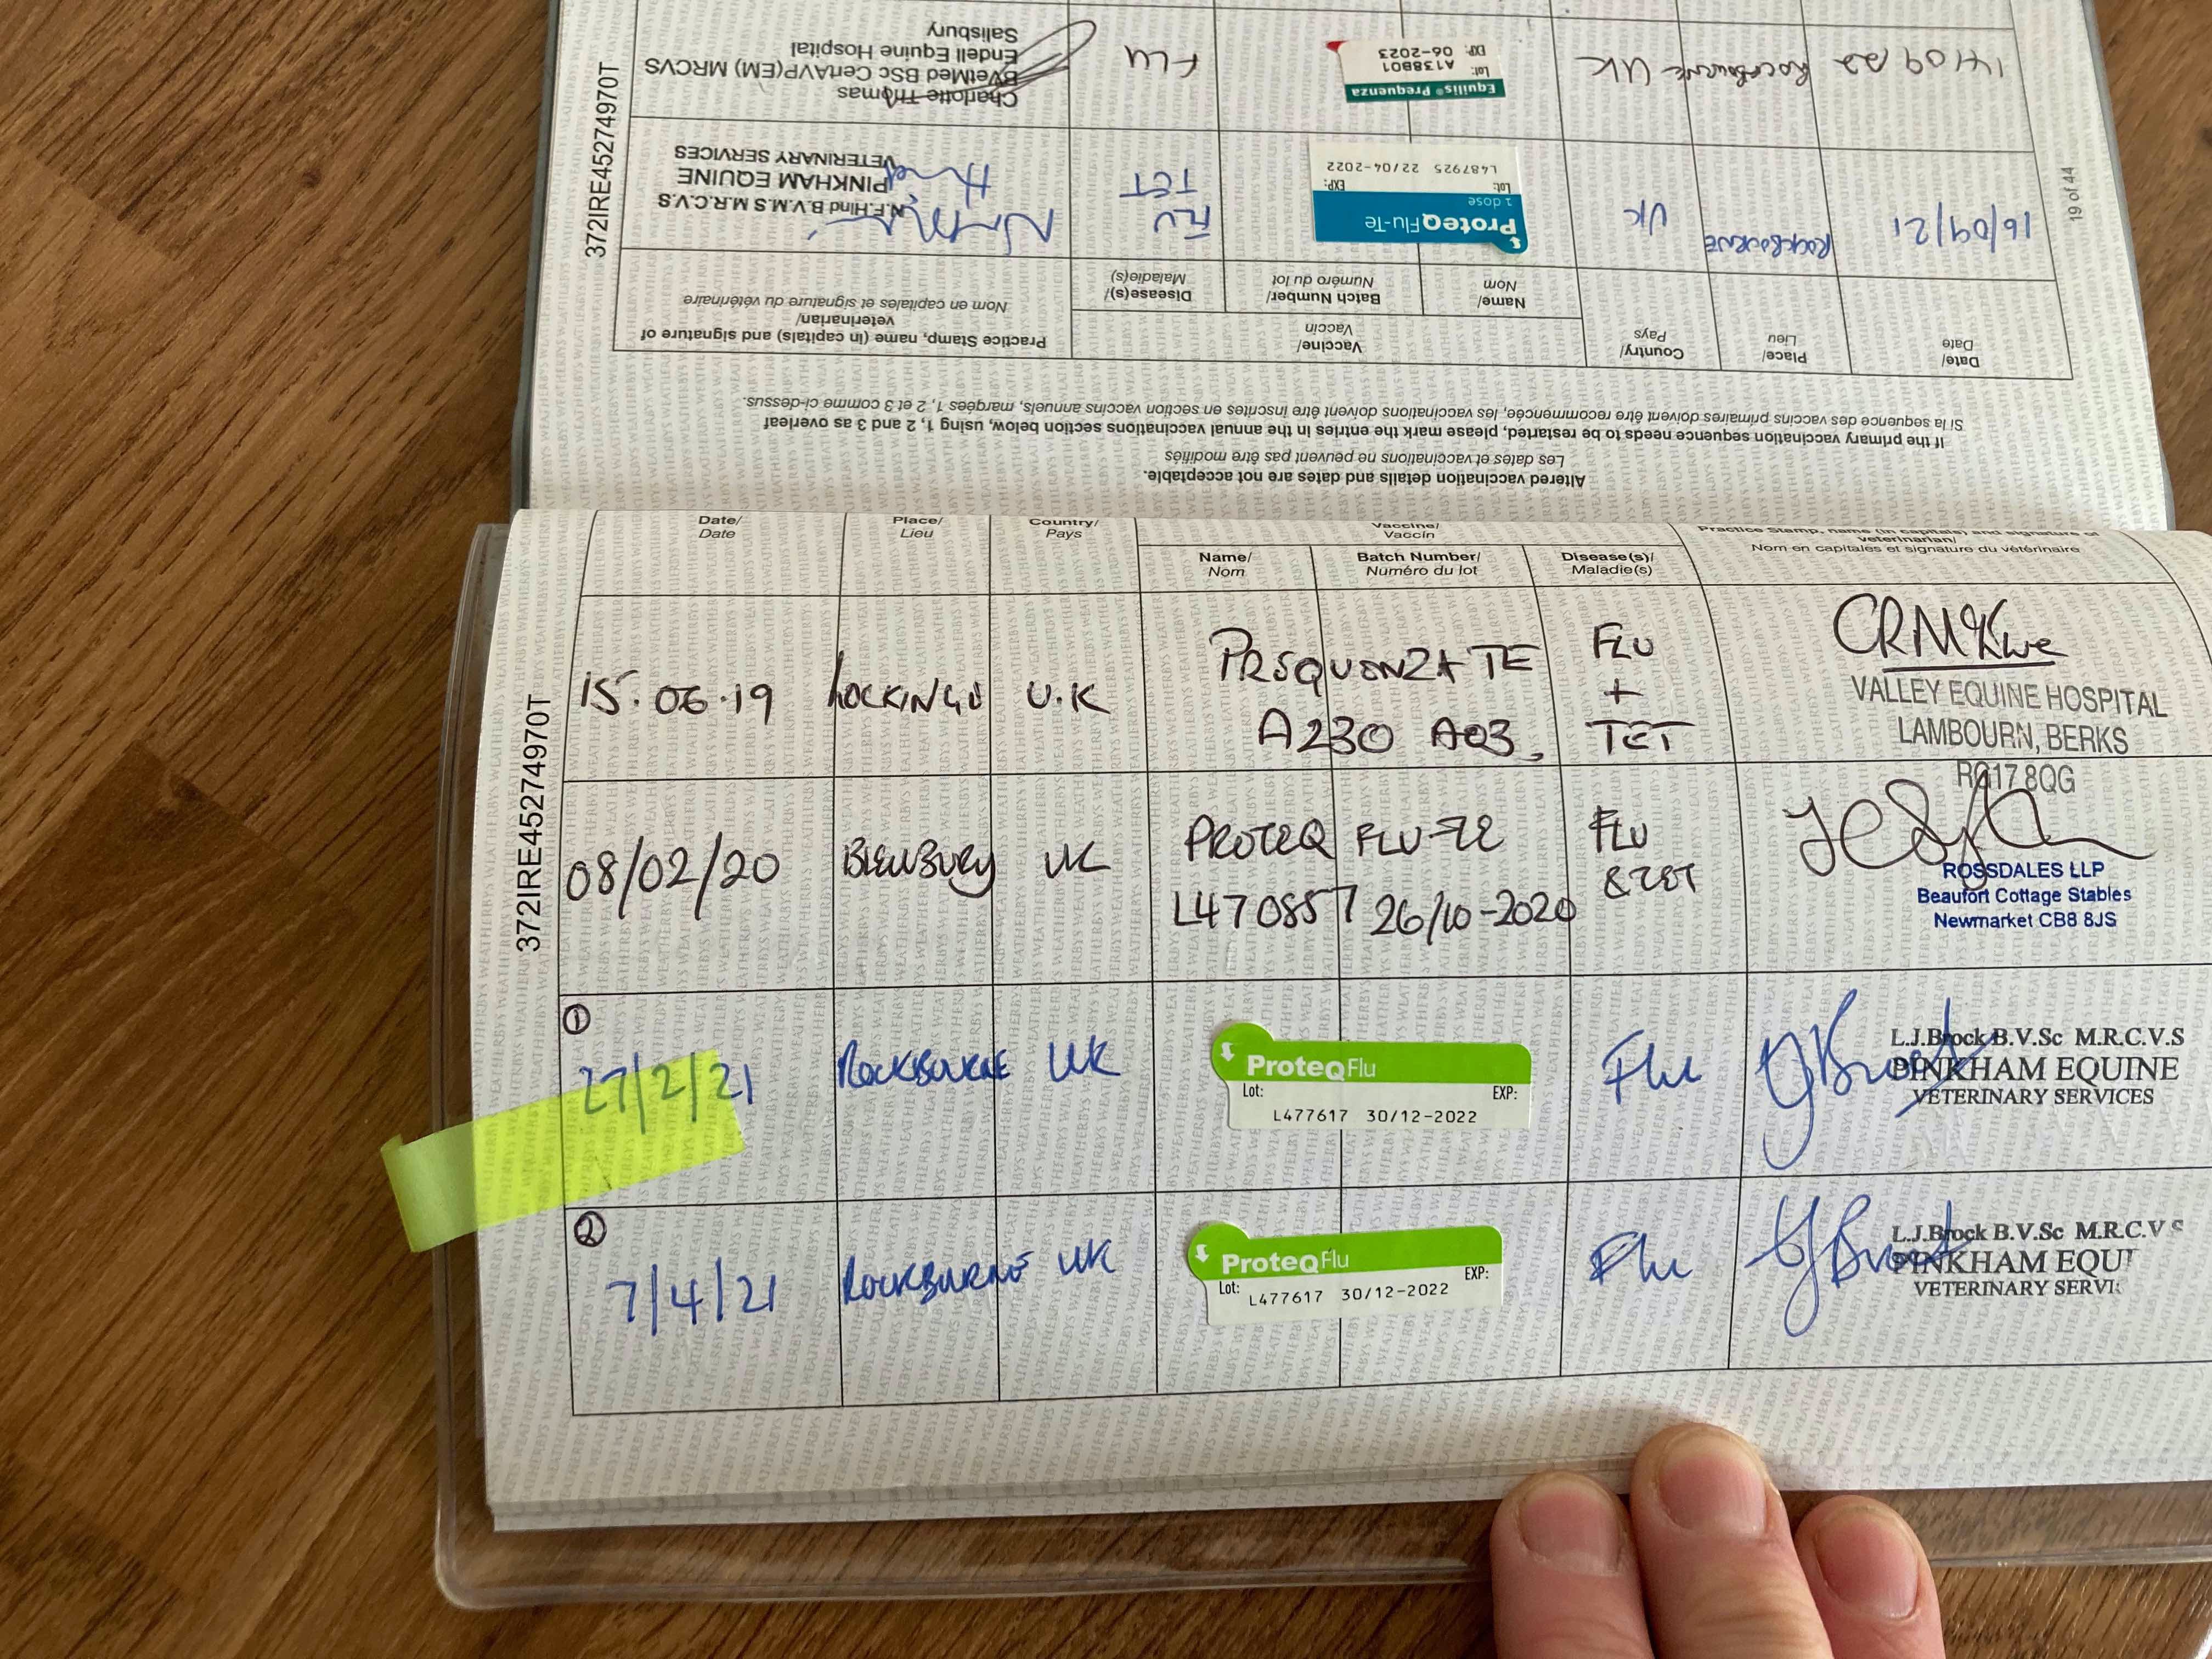 372IRE45274970T
19 of 44
14/09/22 Rockbourne UK
Equilis® Prequenza
Lot: A138B01
EXP: 06-2023
FLU
Charlotte Thomas
BVetMed BSc CertAVP(EM) MRCVS
Endell Equine Hospital
Salisbury
16/09/21 ROCKBOURNE UK
ProteqFlu-Te
1 dose
Lot: EXP:
L487925 22/04-2022
FLU
TET
N.F.Hind B.V.M.S M.R.C.V.S
PINKHAM EQUINE
VETERINARY SERVICES
Date/
Date
Place/
Lieu
Country/
Pays
Vaccine/
Vaccin
Name/
Nom
Batch Number/
Numéro du lot
Disease(s)/
Maladie(s)
Practice Stamp, name (in capitals) and signature of
veterinarian/
Nom en capitales et signature du vétérinaire
If the primary vaccination sequence needs to be restarted, please mark the entries in the annual vaccinations section below, using 1, 2 and 3 as overleaf
Si la sequence des vaccins primaires doivent être recommencée, les vaccinations doivent être inscrites en section vaccins annuels, marquées 1, 2 et 3 comme ci-dessus.
Altered vaccination details and dates are not acceptable.
Les dates et vaccinations ne peuvent pas être modifiés
Date/
Date
Place/
Lieu
Country/
Pays
Vaccine/
Vaccin
Name/
Nom
Batch Number/
Numéro du lot
Disease(s)/
Maladie(s)
Practice Stamp, name (in capitals) and signature of
veterinarian/
Nom en capitales et signature du vétérinaire
372IRE45274970T
15.06.19 LOCKINGE U.K
PREQUENZA TE
A230 A03
FLU
+
TET
VALLEY EQUINE HOSPITAL
LAMBOURN, BERKS
RG17 8QG
08/02/20 BLEWBURY UK
PROTEQ FLU-TE
L470857 26/10-2020
FLU
& TET
ROSSDALES LLP
Beaufort Cottage Stables
Newmarket CB8 8JS
1
27/2/21 ROCKBOURNE UK
ProteqFlu
Lot: EXP:
L477617 30/12-2022
Flu
L.J.Brock B.V.Sc M.R.C.V.S
PINKHAM EQUINE
VETERINARY SERVICES
2
7/4/21 ROCKBURNE UK
ProteqFlu
Lot: EXP:
L477617 30/12-2022
Flu
L.J.Brock B.V.Sc M.R.C.V S
PINKHAM EQUI
VETERINARY SERVI